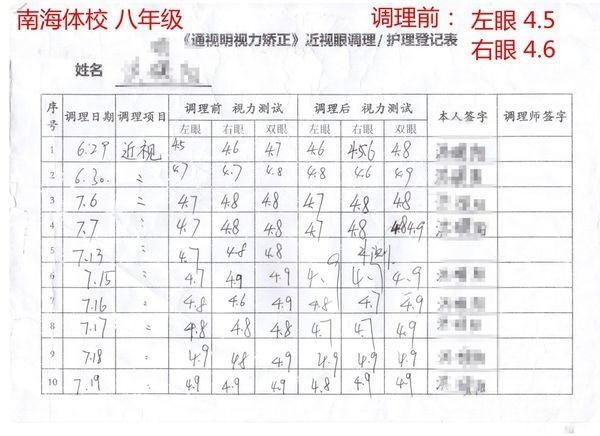 南海体校 八年级 调理前： 左眼 4.5
右眼 4.6
《通视明视力矫正》近视眼调理/护理登记表
姓名
序号 调理日期 调理项目 调理前 视力测试 调理后 视力测试 本人签字 调理师签字
左眼 右眼 双眼 左眼 右眼 双眼
1 6.29 近视 4.5 4.6 4.7 4.6 4.8
2 6.30. 〃 4.7 4.7 4.8 4.8 4.6 4.9
3 7.6 〃 4.7 4.8 4.8 4.7 4.8 4.8
4 7.7 〃 4.7 4.8 4.8 4.7 4.8 4.9
5 7.13 〃 4.7 4.8 4.8
6 7.15 〃 4.7 4.9 4.9 4.9
7 7.16 〃 4.8 4.6 4.9 4.8 4.7 4.9
8 7.17 〃 4.8 4.8 4.8 4.7 4.7 4.9
9 7.18 〃 4.9 4.8 4.9 4.9 4.9 4.9
10 7.19 〃 4.9 4.9 4.9 4.8 4.9 4.9